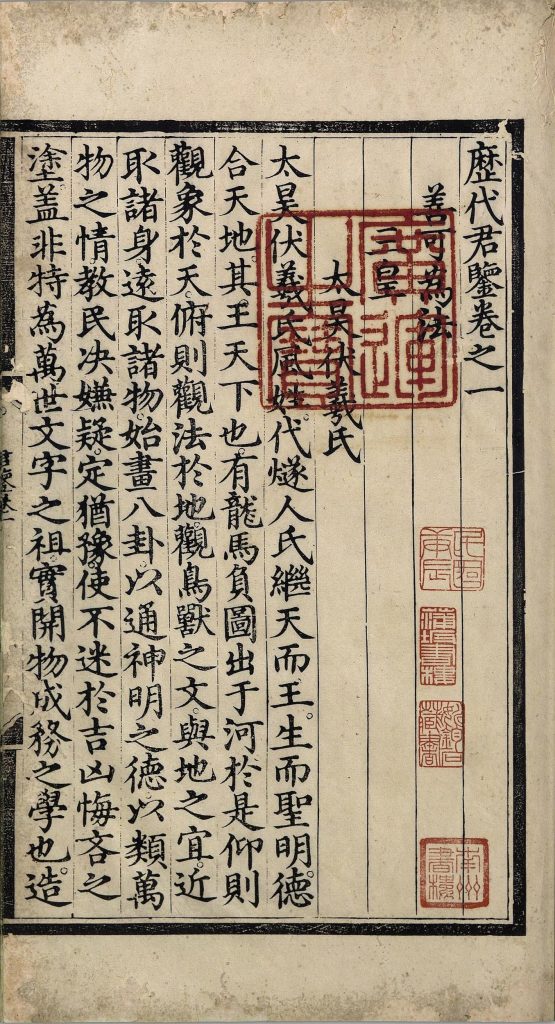 歷代君鑒卷之一
善可為法
三皇
太昊伏羲氏
太昊伏羲氏風姓。代燧人氏繼天而王。生而聖明。德
合天地。其王天下也。有龍馬負圖出于河於是仰則
觀象於天。俯則觀法於地。觀鳥獸之文。與地之宜。近
取諸身遠取諸物。始畫八卦。以通神明之德以類萬
物之情教民决嫌疑。定猶豫。使不迷於吉凶悔吝之
塗。盖非特為萬世文字之祖。實開物成務之學也。造
廣運之寶
民國庚辰
蒲坂書樓
姚鈞石藏書
南州書樓